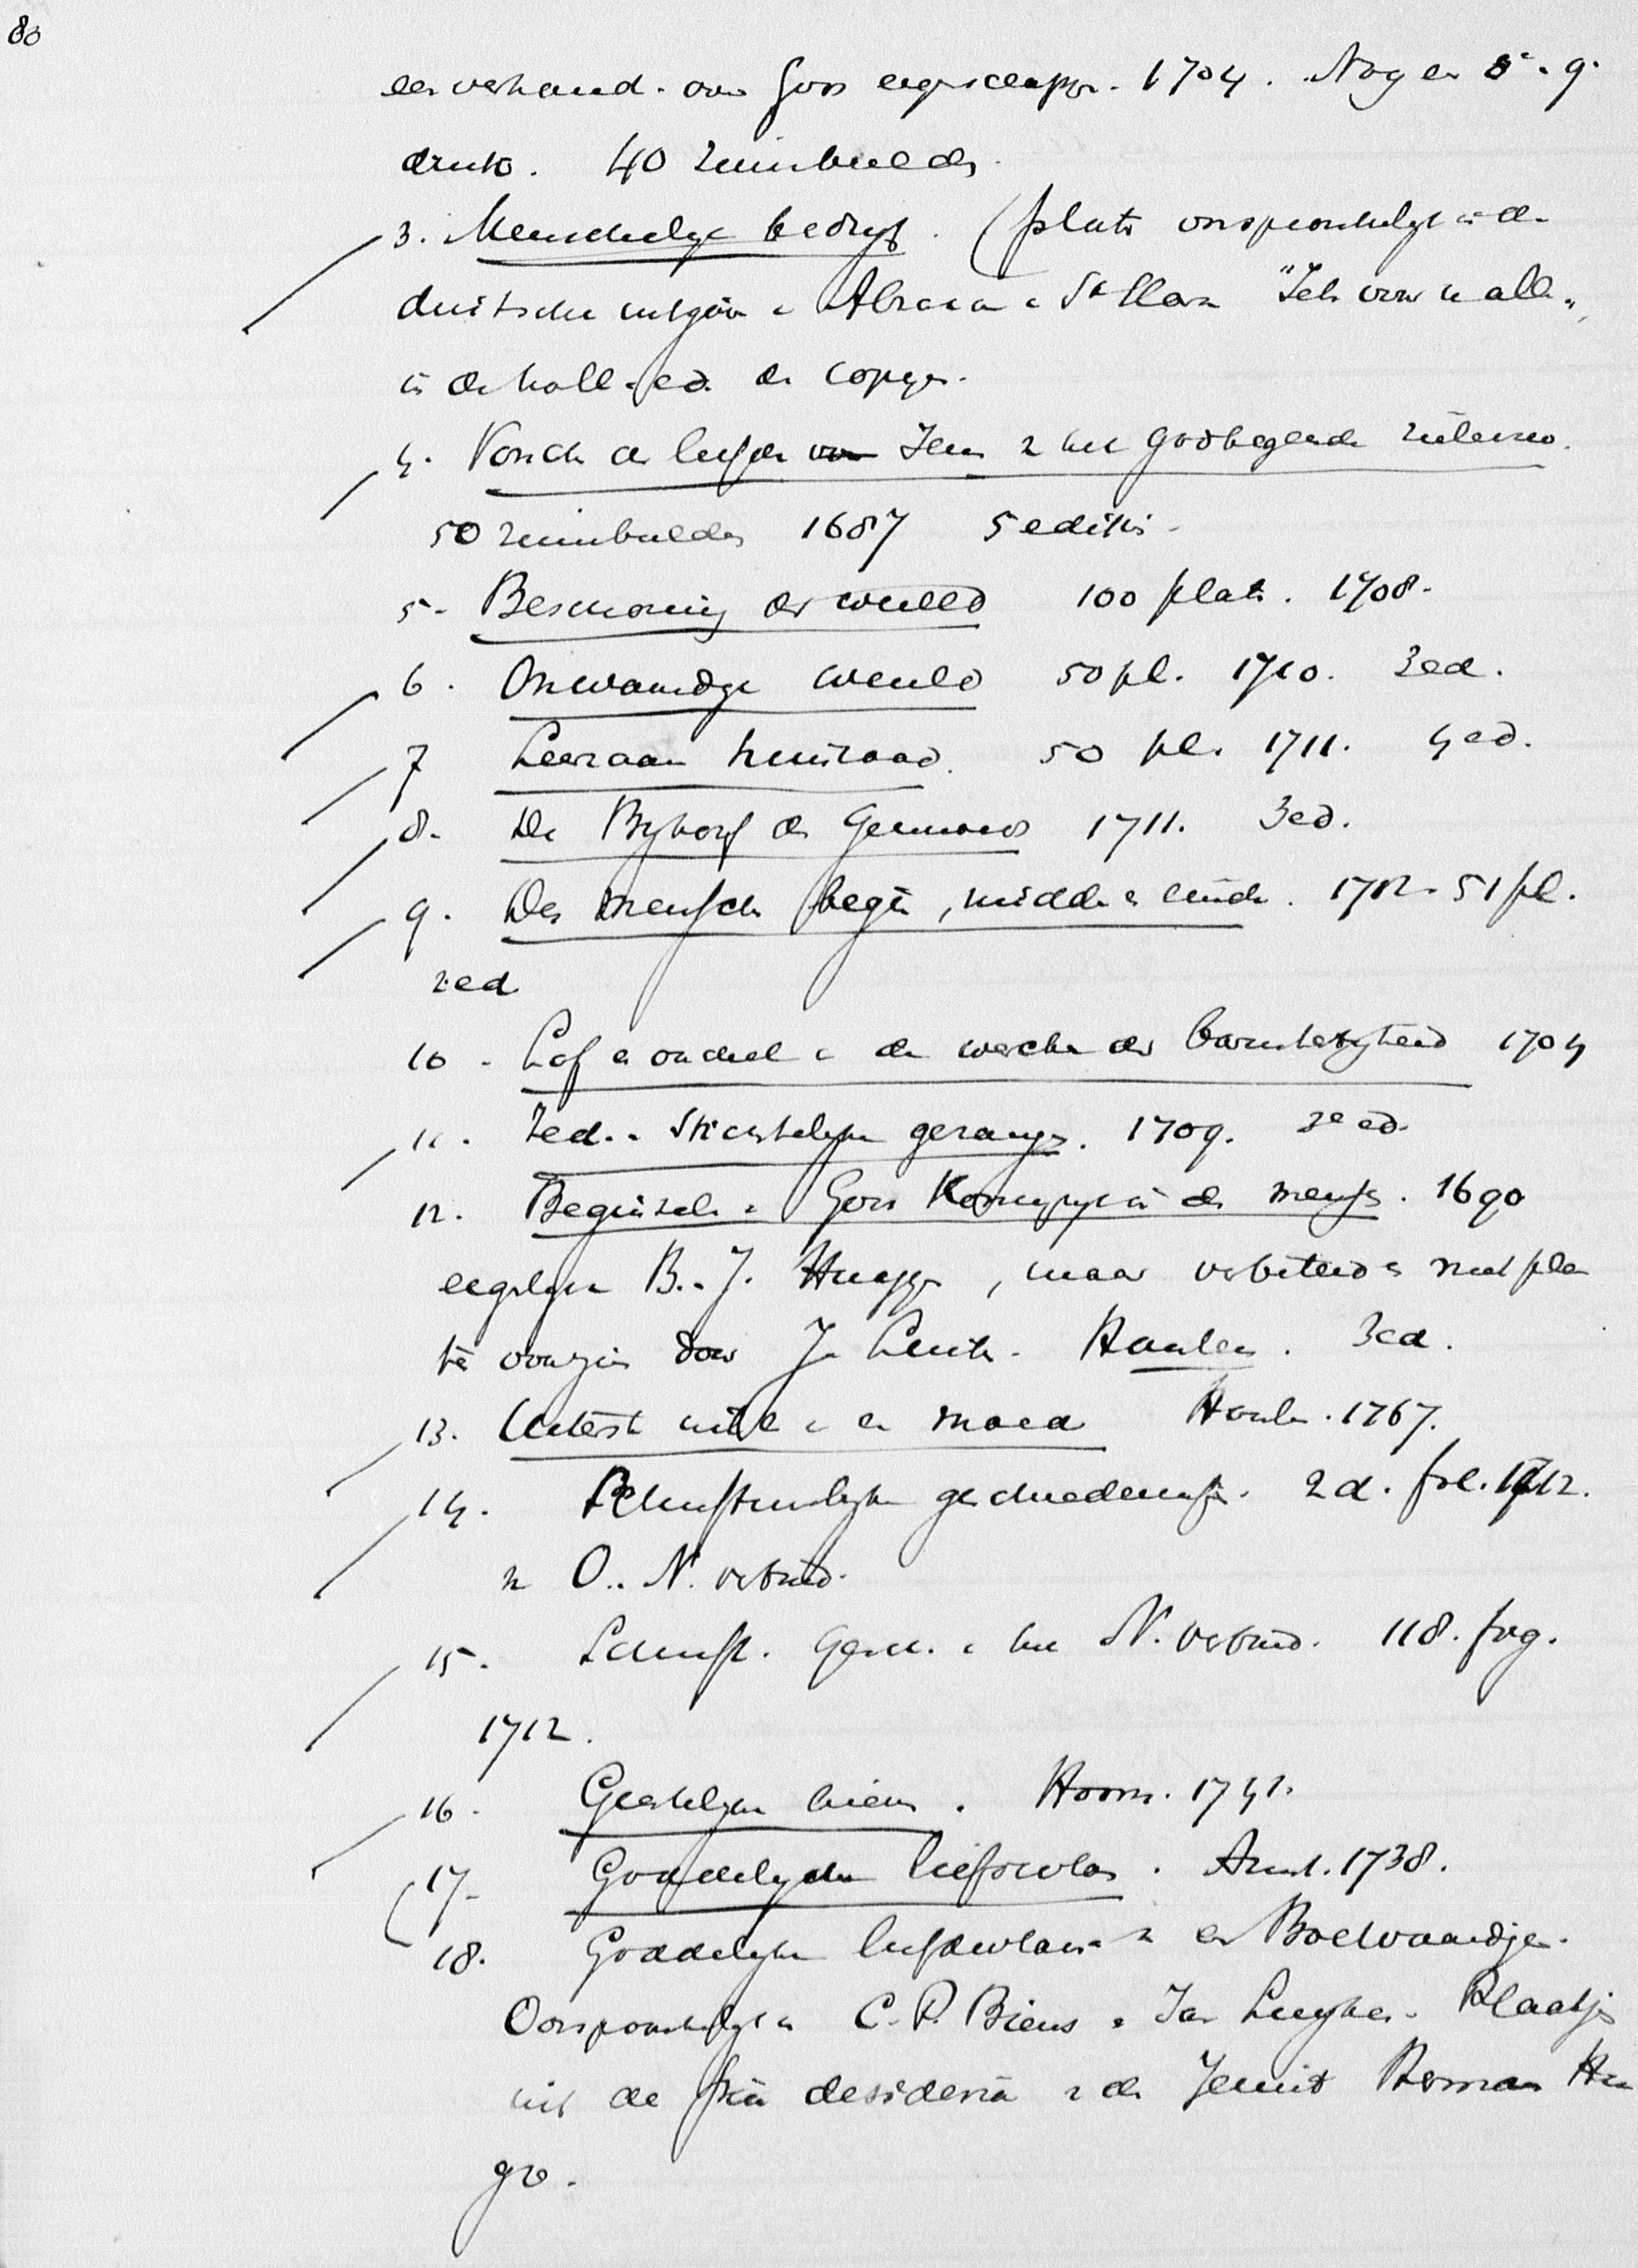 80
een verhand. over Gods eigenschappen. 1704. Nog een 8e. 9e
druk. 40 zinnebeelden.
3. Menschelyk bedryf. (plate oorspronkelyk in de
duitsche uitgave v Abraham a St Clara "Iets voor u allen",
in de holl. ed. de copyen.
4. Vonck der liefde van Jesu v het Godbegerende zieleno.
50 zinnebeelden 1687 5 editie.
5. Beschouwing der wereld 100 plate. 1708.
6. Onwaardige wereld 50 pl. 1710. 3 ed.
7 Leerzaam huisraad. 50 pl. 1711. 4 ed.
8. De Bykorf des Gemoeds 1711. 3 ed.
9. Des menschen begin, midden en einde. 1712. 51 pl.
2 ed
10. Lof en oordeel v de wercken der barmhertigheid 1704
11. Zed. en Stichtelyke gezangen. 1709. 2e ed.
12. Beginselen v Gods Koninkryk in de mensch. 1690
eigelyk B. J. , maar verbeterd en met pla
te voorzien door J Luiken. Haarlem. 3 ed.
13. Uiterste wille v en moed Haarlem. 1767.
14. Schriftuurlyke geschiedenissen. 2 d. fol. 1712.
v O. N. verbond.
15. Schrift. Gesch. v het N. verbond. 118. fig.
1712.
16. Geestelyke brieven. Hoorn. 1741.
17. Goddelyke liefdevlam. Amst. 1738.
18. Goddelyke liefdevlammen v en Boetvaardige.
Oorspronkelyk v C. P. Biens en Jan Luyken. Plaatjes
uit de pia desideria v de Jezuit Herman Hu
go.